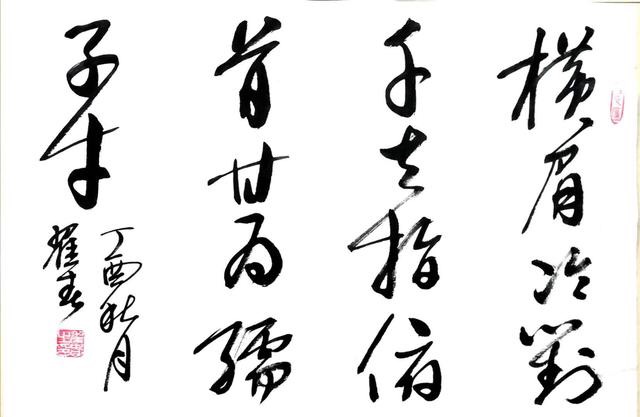 横眉冷對
千夫指俯
首甘为孺
子牛
丁酉秋月
翟